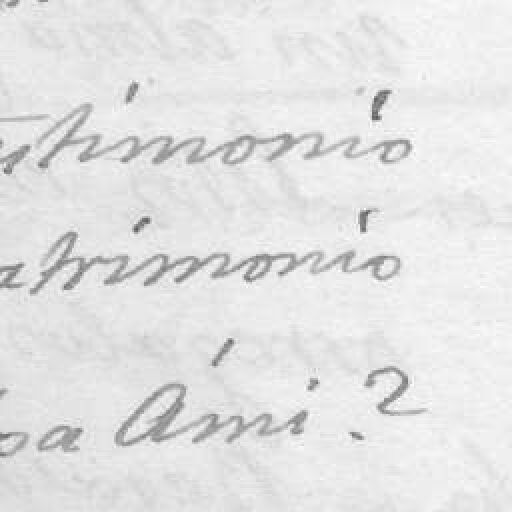 stimonio
atrimonio
sa Ámi.?